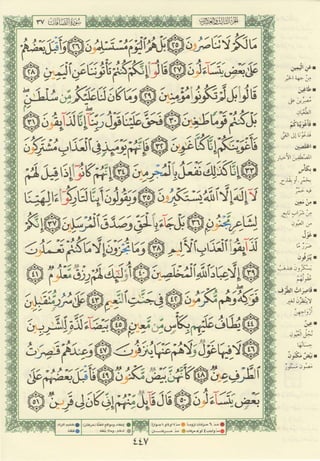 الجزء الثالث والعشرون
سورة الصافات ٣٧
مَا لَكُمْ لَا تَنَاصَرُونَ ٢٥ بَلْ هُمُ ٱلْيَوْمَ مُسْتَسْلِمُونَ ٢٦ وَأَقْبَلَ بَعْضُهُمْ
عَلَىٰ بَعْضٍ يَتَسَآءَلُونَ ٢٧ قَالُوٓا۟ إِنَّكُمْ كُنتُمْ تَأْتُونَنَا عَنِ ٱلْيَمِينِ ٢٨
قَالُوا۟ بَل لَّمْ تَكُونُوا۟ مُؤْمِنِينَ ٢٩ وَمَا كَانَ لَنَا عَلَيْكُم مِّن سُلْطَٰنٍۭ
بَلْ كُنتُمْ قَوْمًا طَٰغِينَ ٣٠ فَحَقَّ عَلَيْنَا قَوْلُ رَبِّنَآ إِنَّا لَذَآئِقُونَ ٣١
فَأَغْوَيْنَٰكُمْ إِنَّا كُنَّا غَٰوِينَ ٣٢ فَإِنَّهُمْ يَوْمَئِذٍ فِى ٱلْعَذَابِ مُشْتَرِكُونَ
٣٣ إِنَّا كَذَٰلِكَ نَفْعَلُ بِٱلْمُجْرِمِينَ ٣٤ إِنَّهُمْ كَانُوٓا۟ إِذَا قِيلَ لَهُمْ
لَآ إِلَٰهَ إِلَّا ٱللَّهُ يَسْتَكْبِرُونَ ٣٥ وَيَقُولُونَ أَئِنَّا لَتَارِكُوٓا۟ ءَالِهَتِنَا
لِشَاعِرٍ مَّجْنُونٍۭ ٣٦ بَلْ جَآءَ بِٱلْحَقِّ وَصَدَّقَ ٱلْمُرْسَلِينَ ٣٧ إِنَّكُمْ
لَذَآئِقُوا۟ ٱلْعَذَابِ ٱلْأَلِيمِ ٣٨ وَمَا تُجْزَوْنَ إِلَّا مَا كُنتُمْ تَعْمَلُونَ
٣٩ إِلَّا عِبَادَ ٱللَّهِ ٱلْمُخْلَصِينَ ٤٠ أُو۟لَٰٓئِكَ لَهُمْ رِزْقٌ مَّعْلُومٌ ٤١
فَوَٰكِهُ وَهُم مُّكْرَمُونَ ٤٢ فِى جَنَّٰتِ ٱلنَّعِيمِ ٤٣ عَلَىٰ سُرُرٍ مُّتَقَٰبِلِينَ
٤٤ يُطَافُ عَلَيْهِم بِكَأْسٍ مِّن مَّعِينٍۭ ٤٥ بَيْضَآءَ لَذَّةٍ لِّلشَّٰرِبِينَ
٤٦ لَا فِيهَا غَوْلٌ وَلَا هُمْ عَنْهَا يُنزَفُونَ ٤٧ وَعِندَهُمْ قَٰصِرَٰتُ
ٱلطَّرْفِ عِينٌ ٤٨ كَأَنَّهُنَّ بَيْضٌ مَّكْنُونٌ ٤٩ فَأَقْبَلَ بَعْضُهُمْ عَلَىٰ
بَعْضٍ يَتَسَآءَلُونَ ٥٠ قَالَ قَآئِلٌ مِّنْهُمْ إِنِّى كَانَ لِى قَرِينٌ ٥١
عن اليمين
من جهة الخير
طاغين
فأغويناكم
المخلصين
بكأس
من معين
غول
ينزفون
قاصرات الطرف
عين
بيض مكنون
٤٤٧